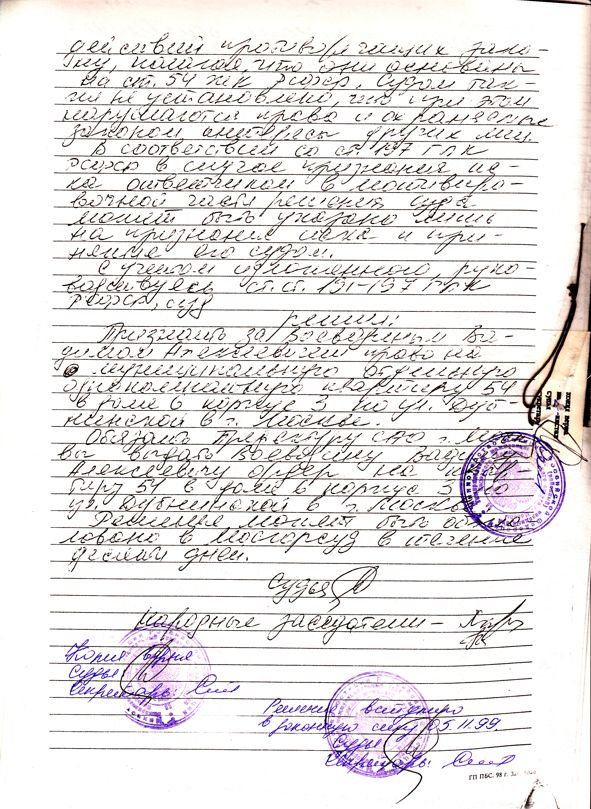 действий противоречащих зако-
ну, полагая, что они основаны
на ст. 54 ЖК РСФСР. Судом так-
же не установлено, что при этом
нарушаются права и охраняемые
законом интересы других лиц.
В соответствии со ст. 197 ГПК
РСФСР в случае признания ис-
ка ответчиком в мотивиро-
вочной части решения суда
может быть указано лишь
на признание иска и при-
нятие его судом.
С учетом изложенного, руко-
водствуясь ст.ст. 191-197 ГПК
РСФСР, суд
решил:
Признать за Воеводиным Ва-
димом Алексеевичем право на
муниципальную отдельную
однокомнатную квартиру 54
в доме 6 корпус 3 по ул. Дуб-
нинской в г. Москве.
Обязать Префектуру САО г. Моск
вы выдать Вадиму
Алексеевичу ордер на квар-
тиру 54 в доме 6 корпус 3 по
ул. Дубнинской в г. Москве
Решение может быть обжа
ловано в Мосгорсуд в течение
десяти дней.
Судья
Народные заседатели -
Копия верна
Судья
Секретарь
Решение вступило
в законную силу 05.11.99.
Судья
Секретарь
ГП ПБС. 98 г.